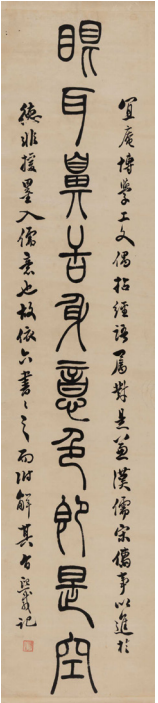 宜庵博學工文偶拈經語屬對是兼漢儒宋儒事以進於
眼耳鼻舌身意色即是空
德非援墨入儒意也故依六書々之而附解其右熙載記